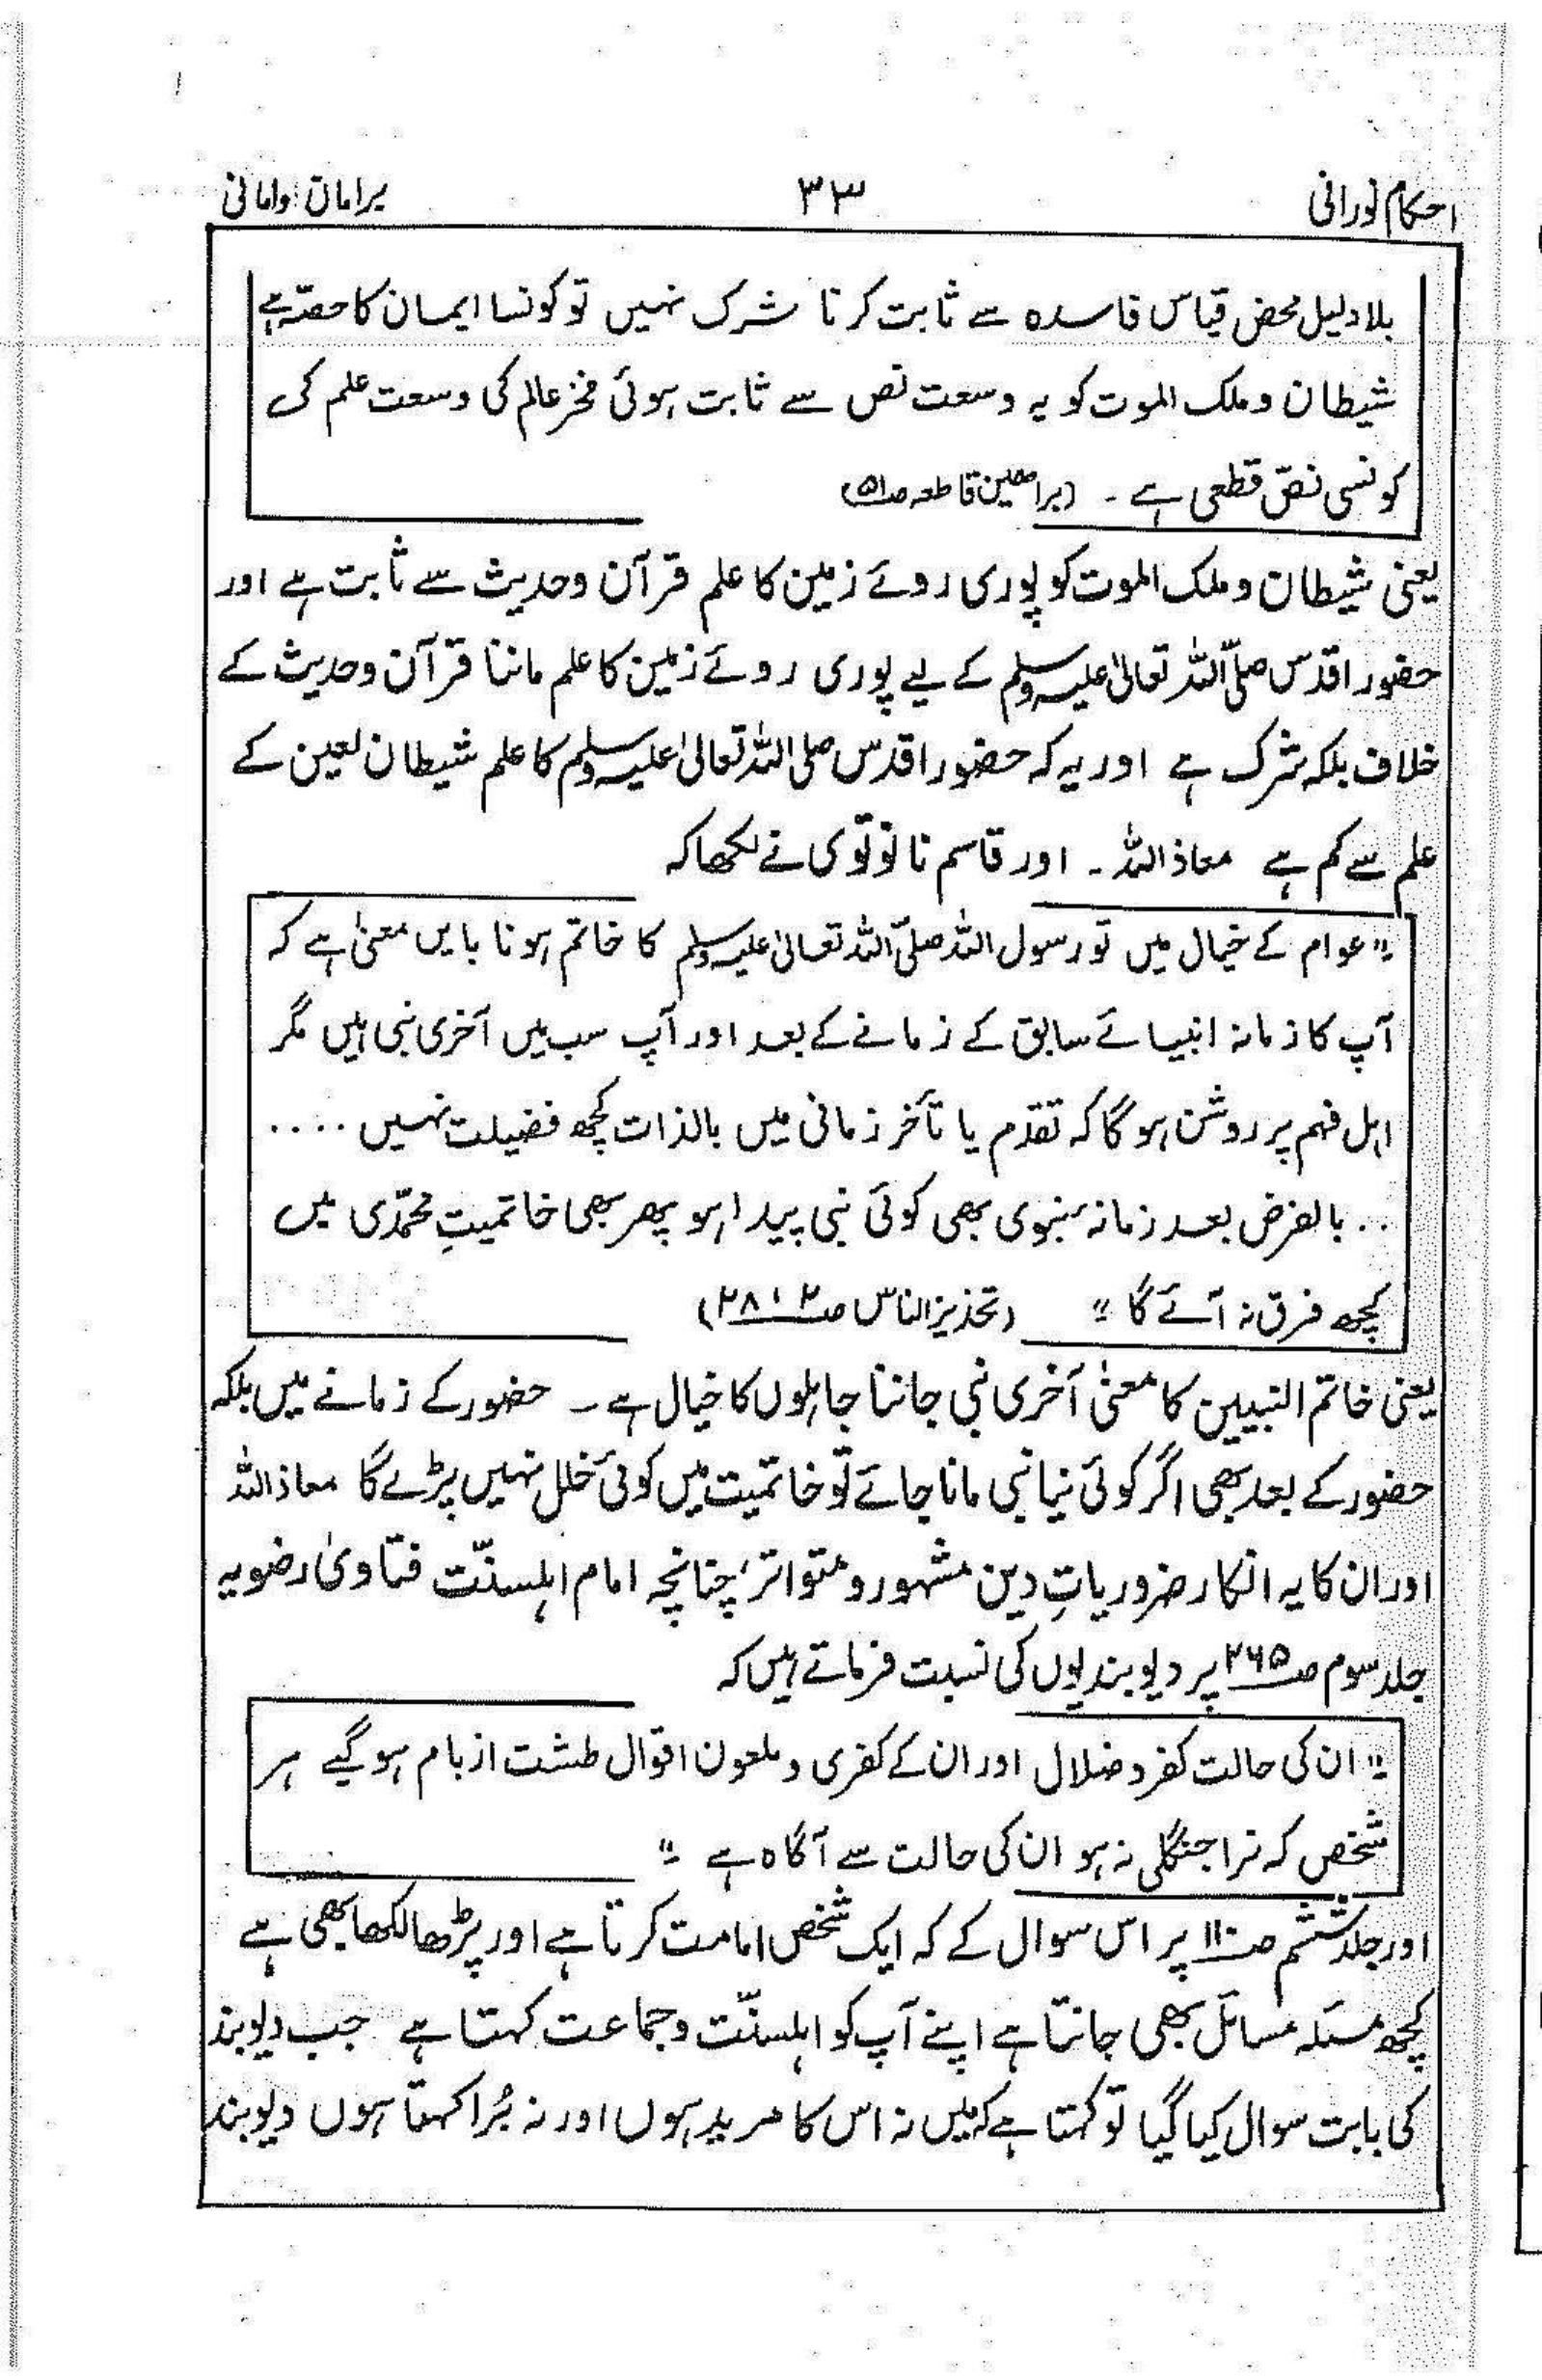 احکام نورانی ۳۳ برامان وامانی
بلا دلیل محض قیاس فاسدہ سے ثابت کرنا شرک نہیں تو کونسا ایمان کا حصّہ ہے
شیطان و ملک الموت کو یہ وسعت نص سے ثابت ہوئی فخر عالم کی وسعت علم کی
کونسی نصّ قطعی ہے ۔ (براھین قاطعہ صـ۵۱)
یعنی شیطان و ملک الموت کو پوری روئے زمین کا علم قرآن و حدیث سے ثابت ہے اور
حضور اقدس صلّی اللہ تعالیٰ علیہ وسلم کے لیے پوری روئے زمین کا علم ماننا قرآن و حدیث کے
خلاف بلکہ شرک ہے اور یہ کہ حضور اقدس صلی اللہ تعالیٰ علیہ وسلم کا علم شیطان لعین کے
علم سے کم ہے معاذ اللہ ۔ اور قاسم نانوتوی نے لکھا کہ
" عوام کے خیال میں تو رسول اللہ صلّی اللہ تعالیٰ علیہ وسلم کا خاتم ہونا بایں معنیٰ ہے کہ
آپ کا زمانہ انبیائے سابق کے زمانے کے بعد اور آپ سب میں آخری نبی ہیں مگر
اہل فہم پر روشن ہوگا کہ تقدّم یا تأخّر زمانی میں بالذات کچھ فضیلت نہیں ....
.. بالفرض بعد زمانہ نبوی بھی کوئی نبی پیدا ہو پھر بھی خاتمیتِ محمّدی میں
کچھ فرق نہ آئے گا " (تحذیر الناس صـ۲، ۲۸)
یعنی خاتم النبیین کا معنیٰ آخری نبی جاننا جاہلوں کا خیال ہے ۔ حضور کے زمانے میں بلکہ
حضور کے بعد بھی اگر کوئی نیا نبی مانا جائے تو خاتمیت میں کوئی خلل نہیں پڑے گا معاذ اللہ
اور ان کا یہ انکار ضروریاتِ دین مشہور و متواتر، چنانچہ امام اہلسنّت فتاویٰ رضویہ
جلد سوم صـ۲۶۵ پر دیوبندیوں کی نسبت فرماتے ہیں کہ
" ان کی حالت کفر و ضلال اور ان کے کفری و ملعون اقوال طشت از بام ہو گیے ہر
شخص کہ نرا جنگلی نہ ہو ان کی حالت سے آگاہ ہے "
اور جلد ششم صـ۱۱۰ پر اس سوال کے کہ ایک شخص امامت کرتا ہے اور پڑھا لکھا بھی ہے
کچھ مسئلہ مسائل بھی جانتا ہے اپنے آپ کو اہلسنّت و جماعت کہتا ہے جب دیوبند
کی بابت سوال کیا گیا تو کہتا ہے کہ میں نہ اس کا مرید ہوں اور نہ بُرا کہتا ہوں دیوبند